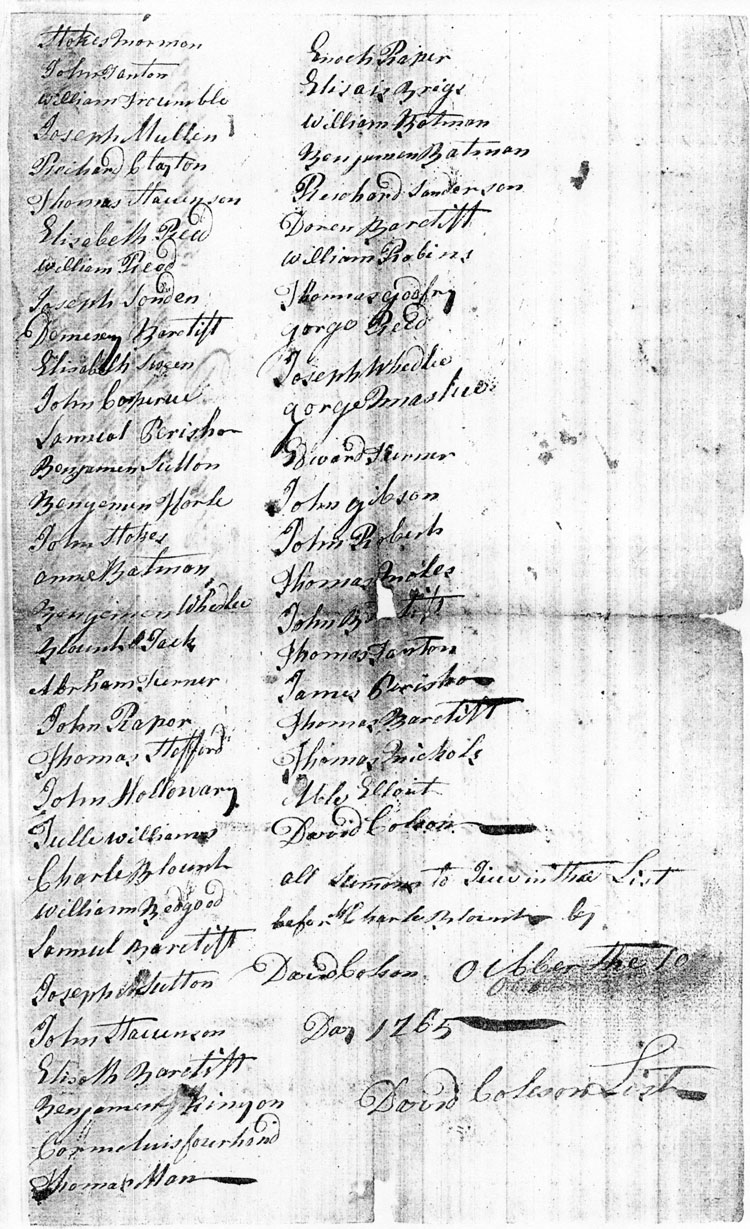 Stokes Norman
John Janton
William Trumble
Joseph Mullen
Richard Clayton
Thomas Stauenson
Elisabeth Reed
William Reed
Joseph Sonden
Barclift
Elisabeth
John
Samuel Perishor
Benjamen Sutton
Bengemen
John Stokes
anne Batman
Bengemen Whedbe
Blount Jack
Abrham Turner
John Rapor
Thomas Stafford
John Holloway
Tulle Williams
Charle Blount
William Bedgood
Samuel Barclift
Joseph Sutton
John Stauenson
Elisoth Barclift
Benjamen Kinyon
Corneluis fourhand
Thomas Man
Enoch Raper
Elisais Brigs
William Batman
Benjamen Batman
Richard Sanderson
Doren Barclift
William Robins
Thomas godfry
gorge Reed
Joseph Whedbe
gorge
Edward Turner
John gibson
John Roberts
Thomas
John
Thomas Janton
James Perishor
Thomas Barclift
Thomas Nichols
Able Ellout
David Colson
all Sumons to Give in thar List
before Charles Blount by
David Colson October the 10
Day 1765
David Coleson List